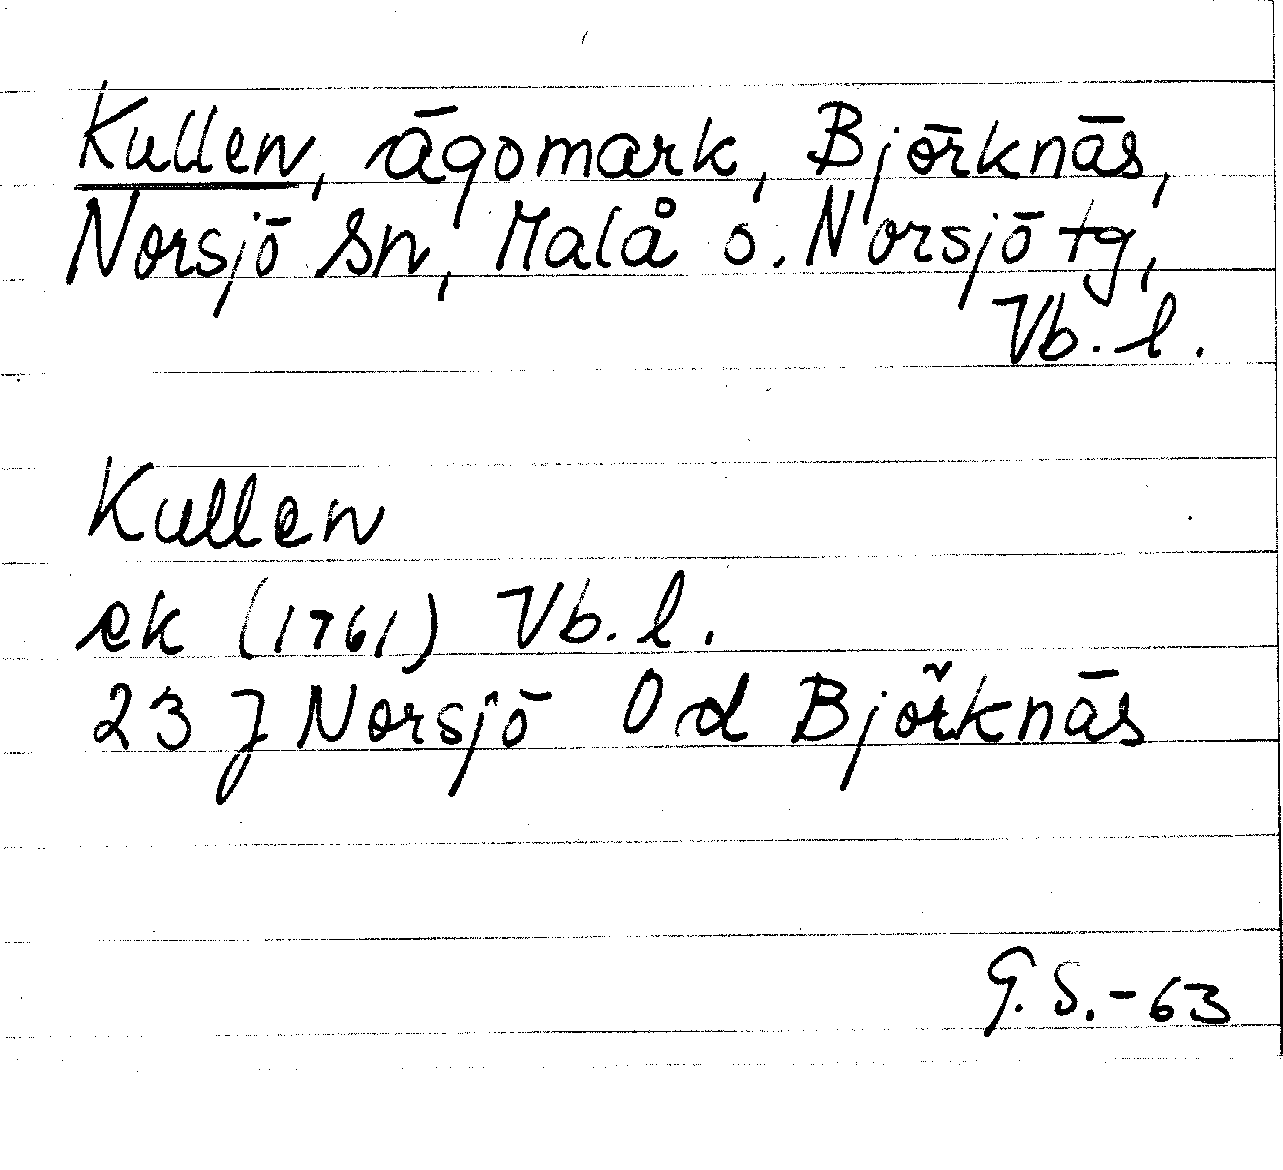 Kullen, ägomark, Björknäs,
Norsjö sn, Malå o. Norsjö tg,
Vb. l.
Kullen
ek (1761) Vb. l.
23 J Norsjö 0 d Björknäs
G. S. - 63